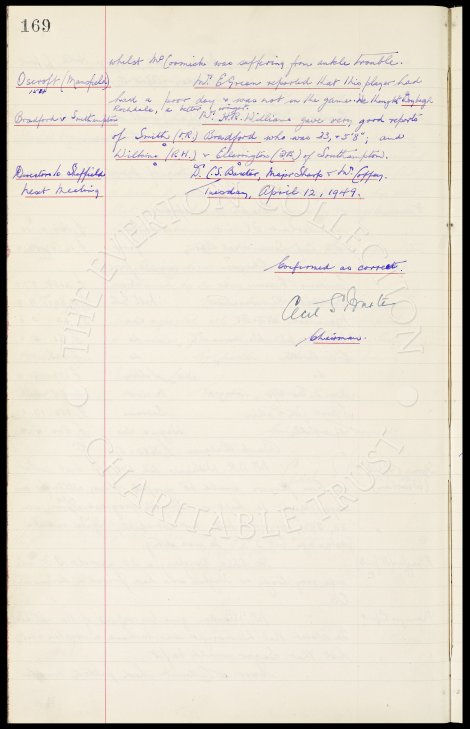 169
whilst McCormick was suffering from ankle trouble.
Oscroft (Mansfield) Mr. E. Green reported that this player had
had a poor day & was not in the game. He thought
Rochdale, a better winger.
Bradford & Southampton Mr. H.R. Williams gave very good reports
of Smith (F.R.) Bradford who was 23, & 5'8"; and
Wilkins (R.H.) & Ellerington (B.R.) of Southampton.
Directors to Sheffield Dr. C.S. Baxter, Major Sharp & Mr. Coffey.
Next Meeting Tuesday, April 12, 1949.
Confirmed as correct.
Cecil S. Baxter
Chairman.
THE EVERTON COLLECTION
CHARITABLE TRUST